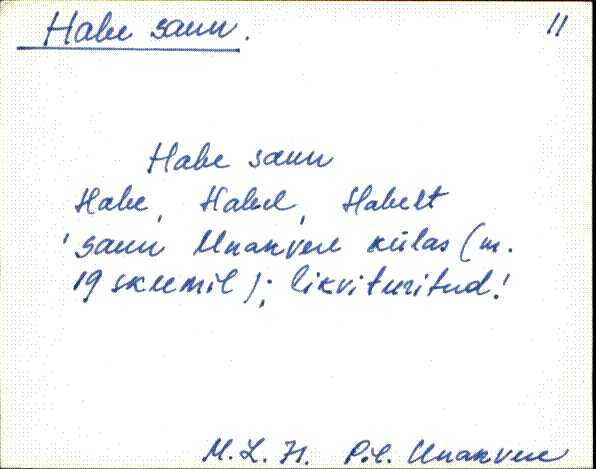 Habe saun. 11
Habe saun
Habe, Habel, Habelt
'saun Unakvere külas (m.
19 skeemil); likvideeritud!
M.L.N. P.-E. Unakvere